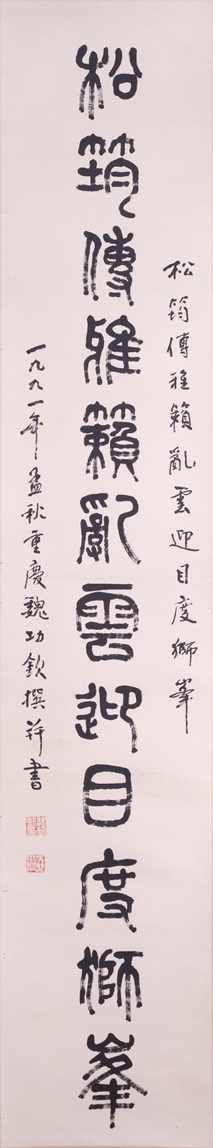 松筠傳雅籟亂雲迎目度獅峯
松筠傳雅籟亂雲迎目度獅峯
一九九一年孟秋重慶魏功欽撰并書